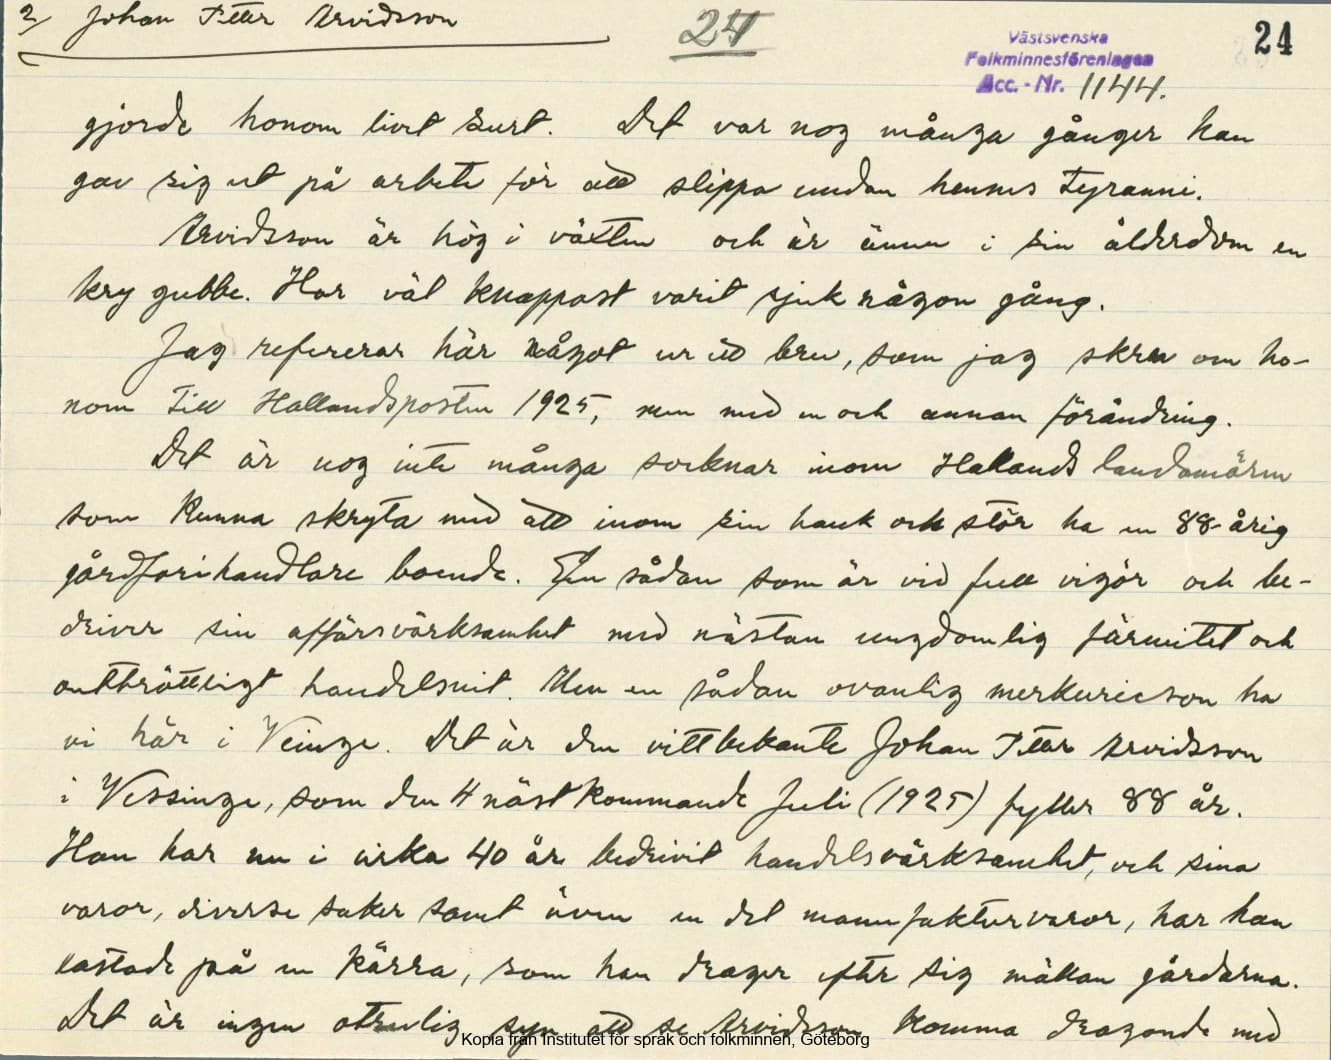 2/ Johan Petter Arvidsson
24
24
Västsvenska
Folkminnesföreningen
Acc.-Nr. 1144.
gjorde honom livet surt. Det var nog många gånger han
gav sig ut på arbete för att slippa undan hennes tyranni.
Arvidsson är hög i växten och är ännu i sin ålderdom en
kry gubbe. Har väl knappast varit sjuk någon gång.
Jag refererar här något ur ett brev, som jag skrev om ho-
nom till Hallandsposten 1925, men med en och annan förändring.
Det är nog inte många socknar inom Hallands landamären
som kunna skryta med att inom sin hank och stör ha en 88-årig
gårdfarihandlare boende. En sådan som är vid full vigör och be-
driver sin affärsvärksamhet med nästan ungdomlig färmitet och
outtröttligt handelsnit. Men en sådan ovanlig merkurieson ha
vi här i Veinge. Det är den vittbekante Johan Petter Arvidsson
i Vessinge, som den 4 nästkommande Juli (1925) fyller 88 år.
Han har nu i cirka 40 år bedrivit handelsvärksamhet, och sina
varor, diverse saker samt även en del manufakturvaror, har han
lastade på en kärra, som han drager efter sig mällan gårdarna.
Det är ingen otrevlig syn att se Arvidsson komma dragande med
Kopia från Institutet för språk och folkminnen, Göteborg